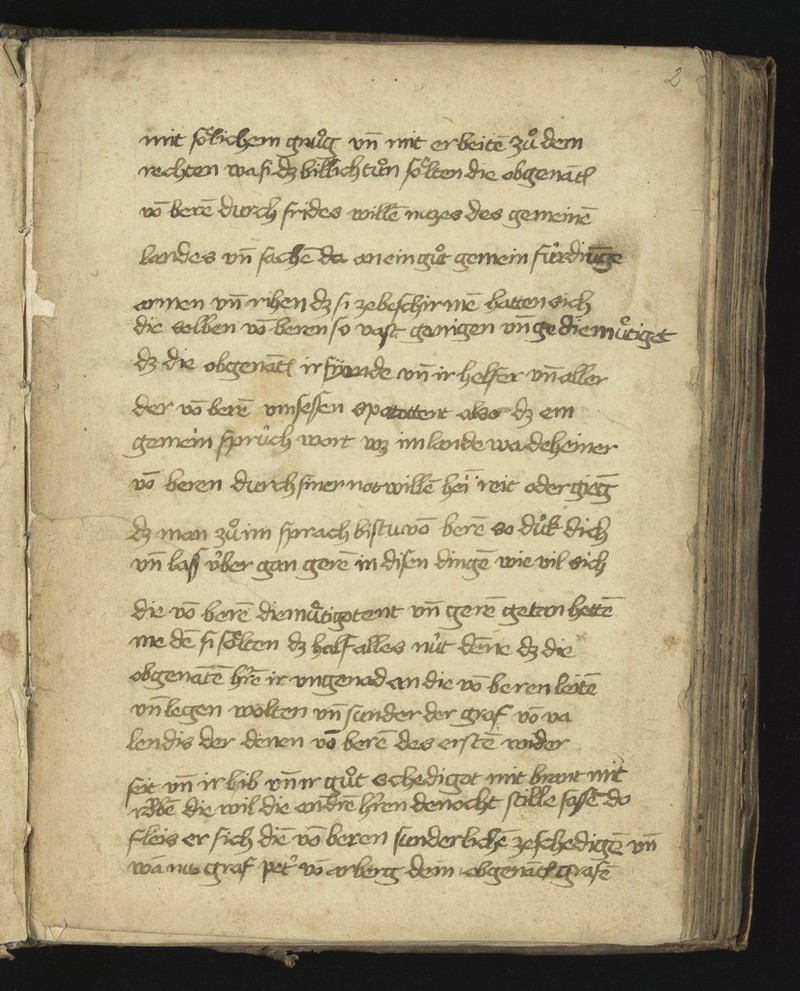 2
mit soͤlichem gnuͦg vn̄ mit erbeitē zuͦ dem
rechten was dz billich tuͦn soͤlten die obgenāt
vō berē durch frides willē nuzes des gemeinē
landes vn̄ sachē da an ein guͦt gemein
armen vn̄ rihen dz si ze beschirmē hatten sich
die selben vō beren so vast vn̄ gediemuͤtiget
dz die obgenāt ir fyͤnde vn̄ ir helfer vn̄ aller
der vō berē vmsessen spottotent also dz ein
gemein spruͤch wart vnz im lande wa deheiner
vō beren durch siner notwillē hēi reit oder gieg
dz man zuͦ im sprach bistu vō berē so duͦk dich
vn̄ lass vͤber gan gerē in disen dingē wie vil sich
die vō berē diemuͤtigotent vn̄ gerē getan hettē
me dē si soͤlten dz half alles nuͤt dēne dz die
obgenātē hr̄e ir vngenad an die vō beren leitē
vn̄ legen wolten vn̄ sunder der graf vō va
lendis der denen vō berē des erstē wider
seit vn̄ ir lib vn̄ ir guͦt schediget mit brant mit
die wil die andrē hr̄en denocht stille sassē do
fleis er sich die vō beren sunderlichē ze schedigē vn̄
wā nu graf pet' vō arberg dem obgenāt grafē